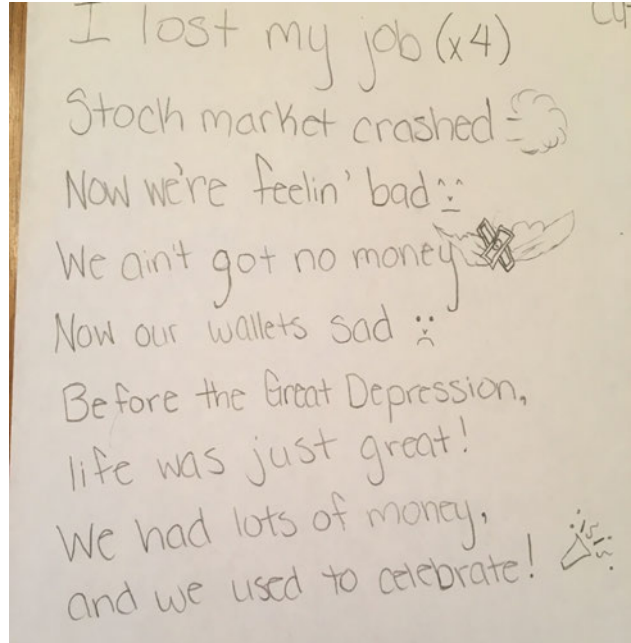 I lost my job (x4)
Stock market crashed
Now we're feelin' bad
We ain't got no money
Now our wallets sad
Before the Great Depression,
life was just great!
We had lots of money,
and we used to celebrate!